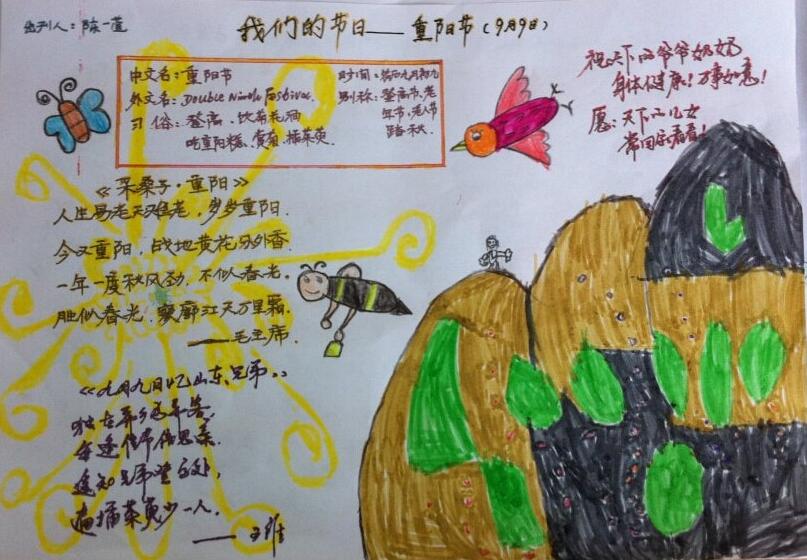 出刊人：陈一萱
我们的节日——重阳节（9月9日）
中文名：重阳节
外文名：Double Ninth Festival
习俗：登高、饮菊花酒
吃重阳糕、赏菊、插茱萸
时间：农历九月初九
别称：登高节、老
年节、老人节
踏秋
祝天下的爷爷奶奶
身体健康！万事如意！
愿：天下的儿女
常回家看看！
《采桑子·重阳》
人生易老天难老，岁岁重阳.
今又重阳，战地黄花分外香.
一年一度秋风劲，不似春光。
胜似春光，寥廓江天万里霜.
——毛主席.
《九月九日忆山东兄弟。》
独在异乡为异客，
每逢佳节倍思亲.
遥知兄弟登高处，
遍插茱萸少一人.
——王维